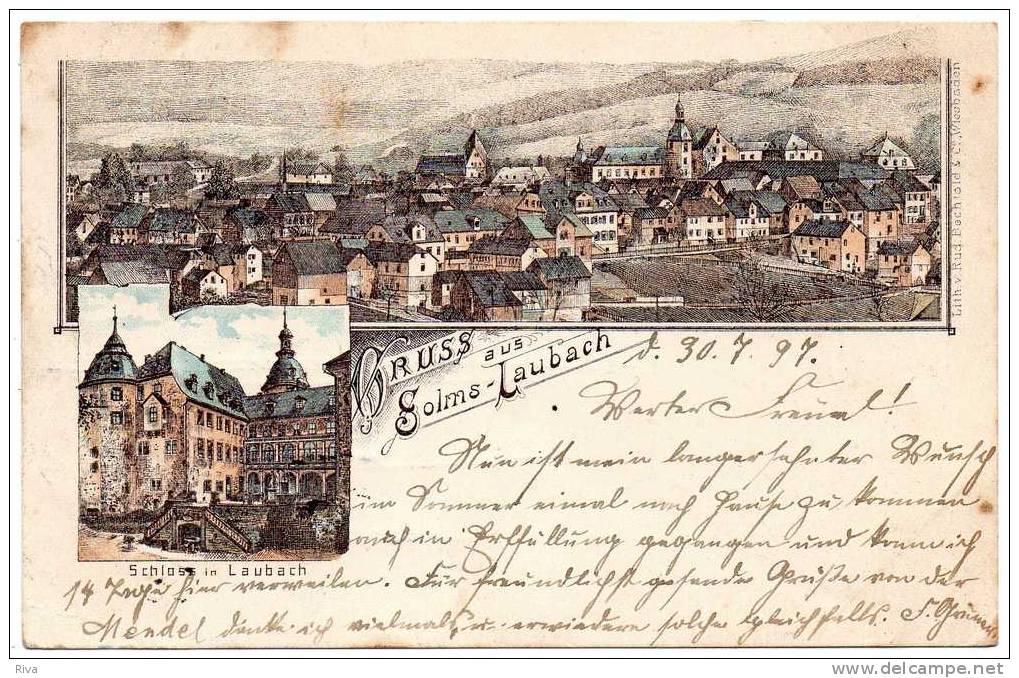 Lith. v. Rud. Bechtold & C., Wiesbaden
Gruss aus
Solms-Laubach
d. 30.7.97.
Werter Freund!
Nun ist mein langersehnter Wunsch
im Sommer einmal nach Hause zu kommen
auch in Erfüllung gegangen und kann ich
Schloss in Laubach
14 Tage hier verweilen. Für freundlichst gesende Grüße von der
Mendel danke ich vielmals, u. erwiedere solche gleichfalls.
Riva
delcampe.net